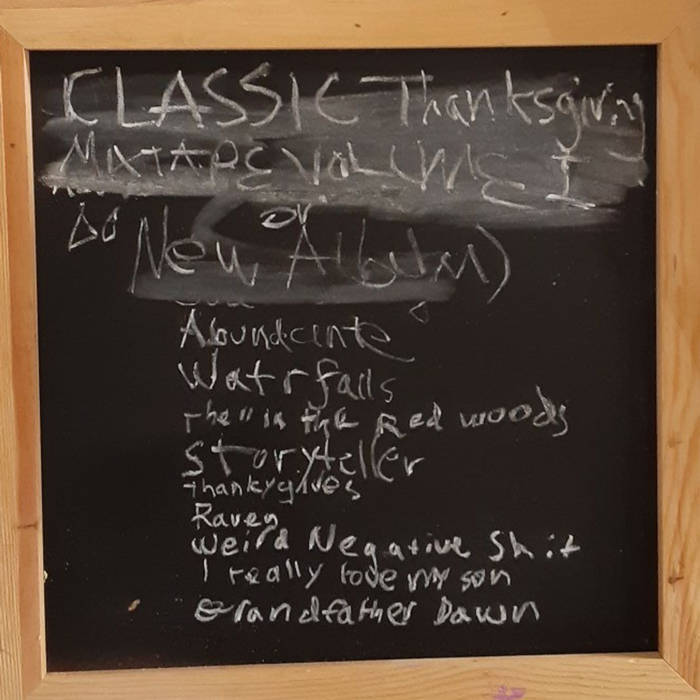 CLASSIC Thanksgiving
MIXTAPE VOLUME I
or
New Album)
Abundcente
Watrfalls
the " in the Red woods
Storyteller
thankygives
Raven
Weird Negative Shit
I really love my son
Grandfather Dawn